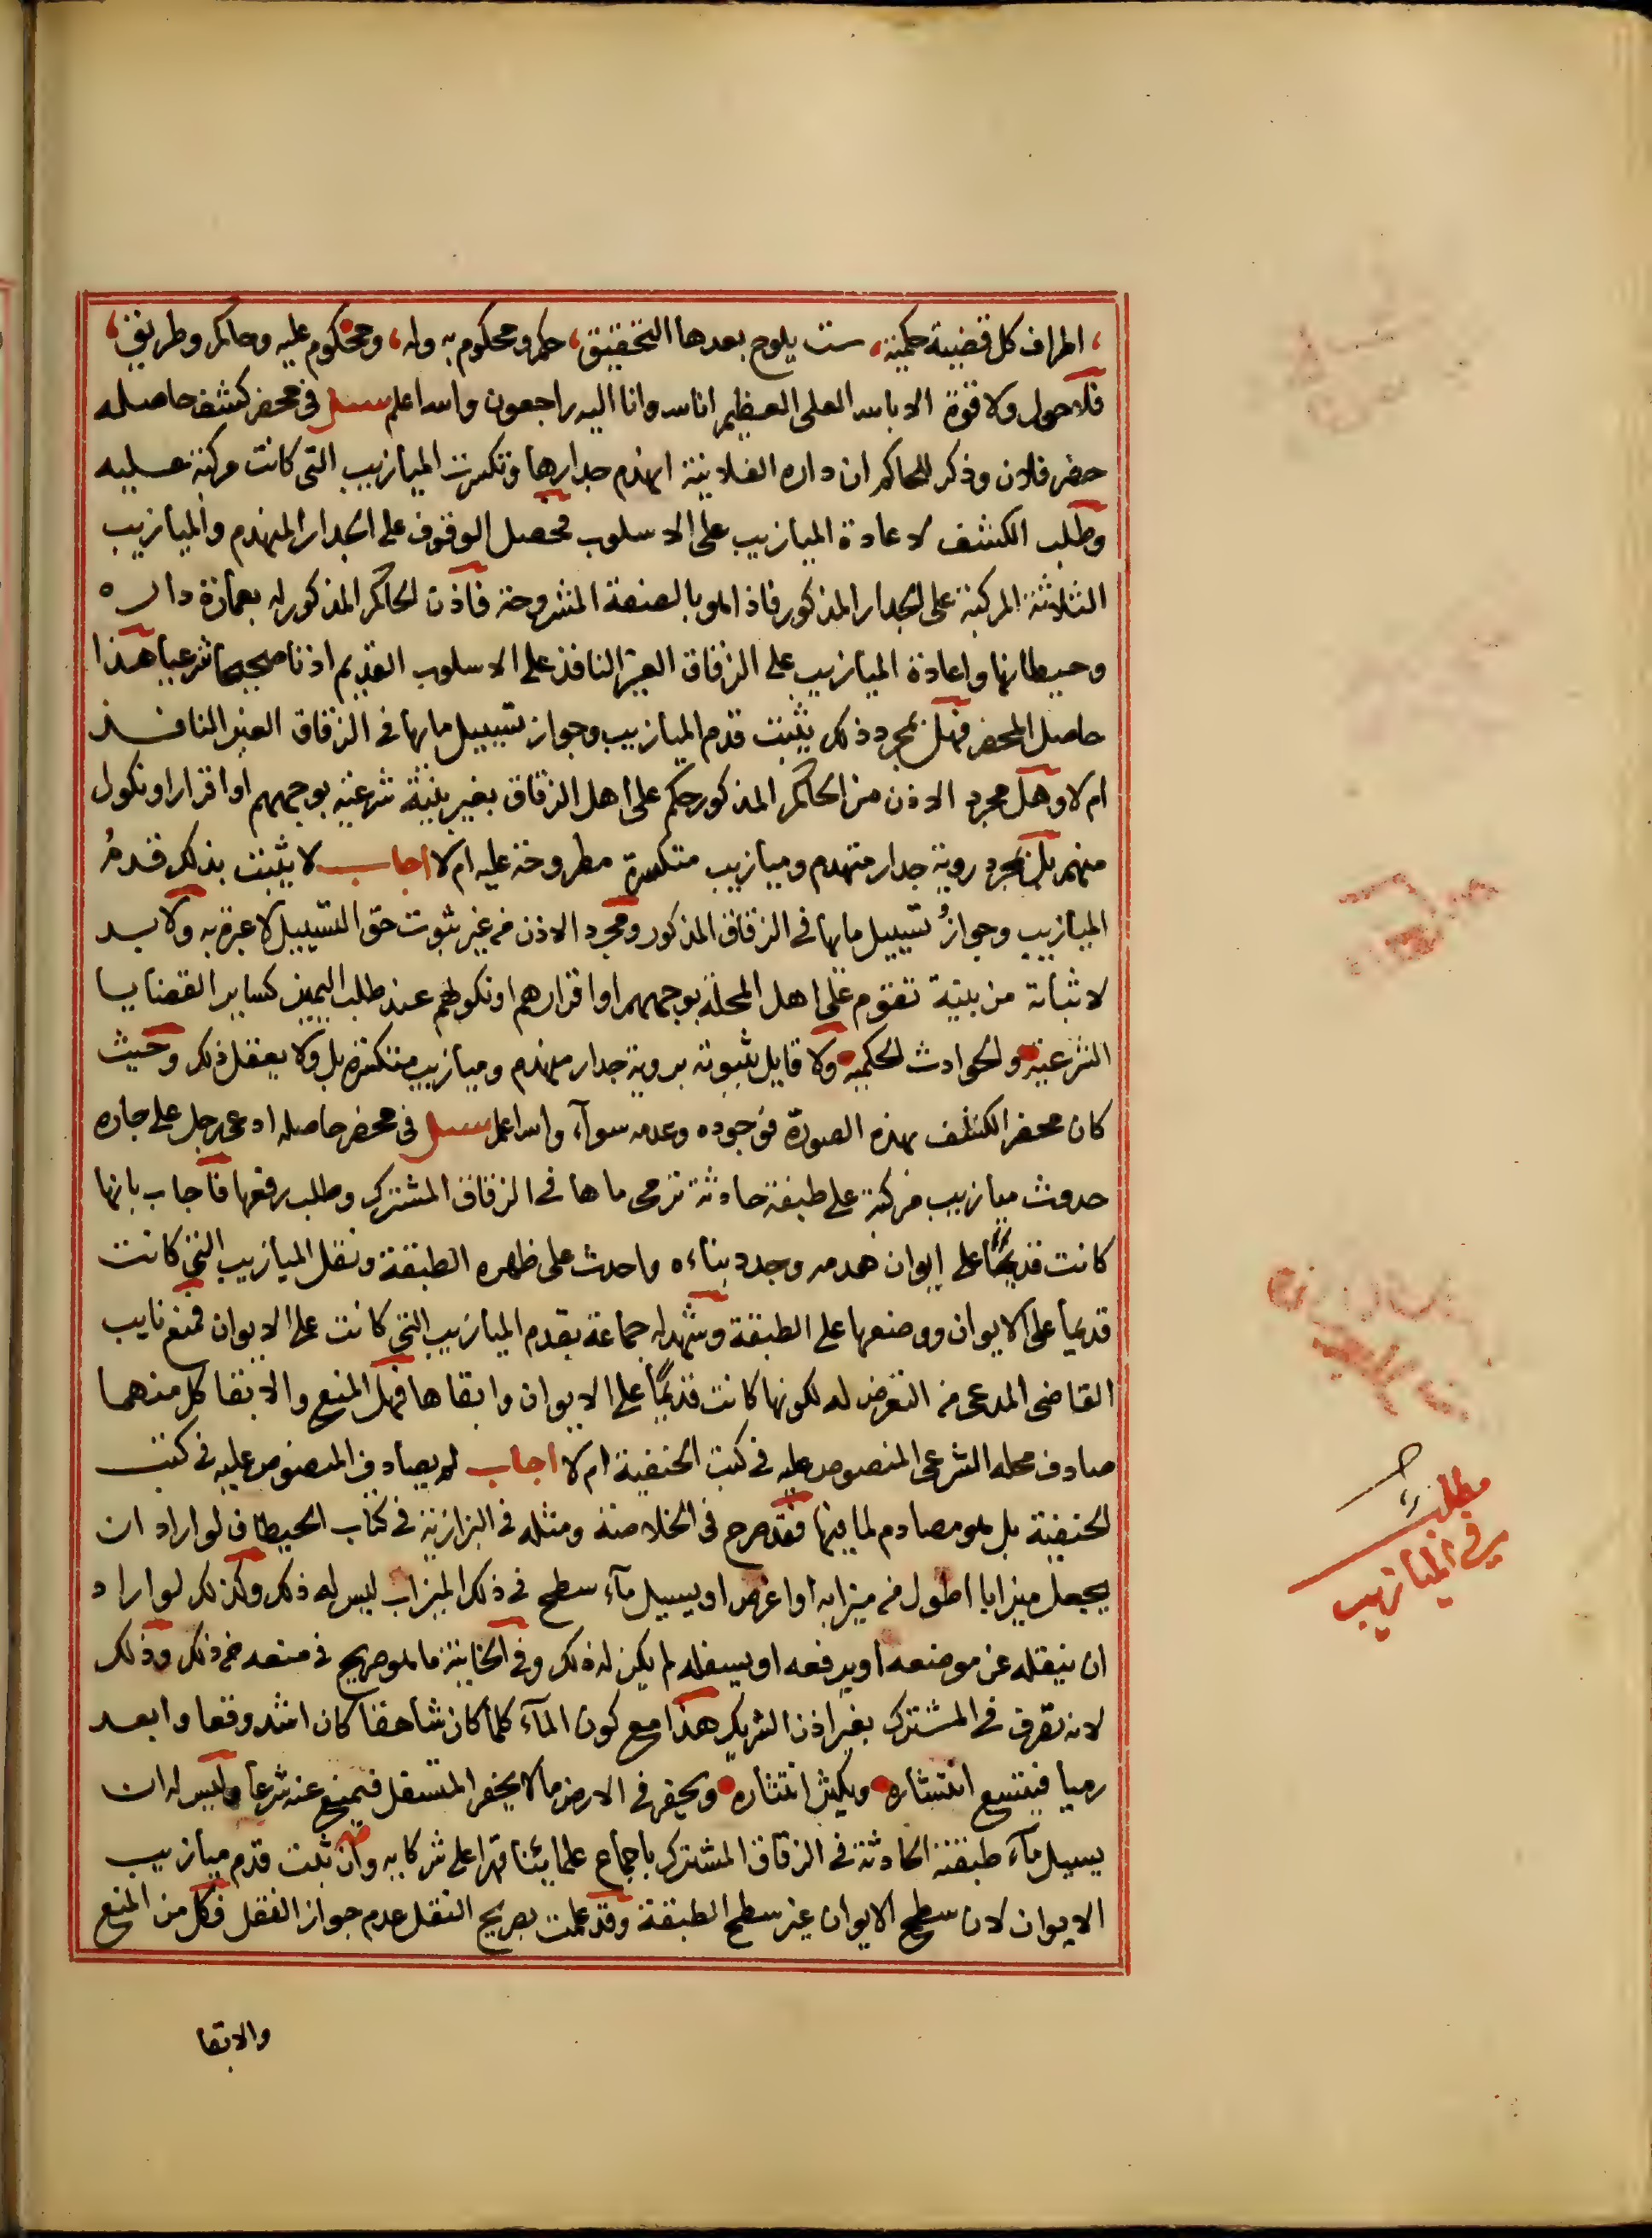 اطراف كل قضية حكمية، ست يلوح بعدها التحقيق، حكم ومحكوم به وله، ومحكوم عليه وحاكم وطريق،
فلا حول ولا قوة الا بالله العلى العظيم انا لله وانا اليه راجعون والله اعلم سئل فى محضر كشف حاصله
حضر فلان وذكر للحاكم ان داره الفلانية انهدم جدارها وتكسرت الميازيب التى كانت مركبة عليه
وطلب الكشف لاعادة الميازيب على الاسلوب فحصل الوقوف على الجدار المنهدم والميازيب
الثلاثة المركبة على الجدار المذكور فاذا هو بالصفة المشروحة فاذن الحاكم المذكور له بعمارة داره
وحيطانها واعادة الميازيب على الزقاق الغير النافذ على الاسلوب القديم اذنا صحيحا شرعيا هذا
حاصل المحضر فهل بمجرد ذلك يثبت قدم الميازيب وجواز تسييل مائها فى الزقاق الغير النافذ
ام لا وهل مجرد الاذن من الحاكم المذكور حكم على اهل الزقاق بغير بينة شرعية بوجههم او اقرار او نكول
منهم بل بمجرد روية جدار متهدم وميازيب متكسرة مطروحة عليه ام لا اجاب لا يثبت بذلك قدمُ
الميازيب وجوازُ تسييل مائها فى الزقاق المذكور ومجرد الاذن من غير ثبوت حق التسييل لا عبرة به ولا بد
لاثباته من بينة تقوم على اهل المحلة بوجههم او اقرارهم او نكولهم عند طلب اليمين كساير القضايا
الشرعية والحوادث الحكمية ولا قايل بثبوته بروية جدار منهدم وميازيب متكسرة بل ولا يعقل ذلك وحيث
كان محضر الكشف بهذه الصورة فوجوده وعدمه سواء والله اعلم سئل فى محضر حاصله ادعى رجل على جاره
حدوث ميازيب مركبة على طبقة حادثة ترمى ماها فى الزقاق المشترك وطلب رفعها فاجاب بانها
كانت قديما على ايوان هدمه وجدد بناءه واحدث على ظهره الطبقة ونقل الميازيب التى كانت
قديماً على الايوان ووضعها على الطبقة وشهد له جماعة بقدم الميازيب التى كانت على الايوان فمنع نايب
القاضى المدعى من التعرض له لكونها كانت قديماً على الايوان وابقاها فهل المنع والابقا كل منهما
صادف محله الشرعى المنصوص عليه فى كتب الحنفية ام لا اجاب لم يصادف المنصوص عليه فى كتب
الحنفية بل هو مصادم لما فيها فقد صرح فى الخلاصة ومثله فى البزازية فى كتاب الحيطان لو اراد ان
يجعل ميزابا اطول من ميزابه او اعرض او يسيل مآء سطح فى ذلك الميزاب ليس له ذلك وكذلك لو اراد
ان ينقله عن موضعه او يرفعه او يسفله لم يكن له ذلك وفى الخانية ما هو صريح فى منعه من ذلك وذلك
لانه تصرف فى المشترك بغير اذن الشريك هذا مع كون المآء كلما كان شاهقا كان اشد وقعا وابعد
رميا فيتسع انتشاره ويكثر انتثاره ويحفر فى الارض ما لا يحفر المتسفل فيمنع عنه شرعا وليس له ان
يسيل مآء طبقته الحادثة فى الزقاق المشترك باجماع علمائنا قهرا على شركايه وان ثبت قدم ميازيب
الايوان لان سطح الايوان غير سطح الطبقة وقد علمت بصريح النقل عدم جواز النقل فكل من المنع
والابقا
مطلب
فى الميازيب